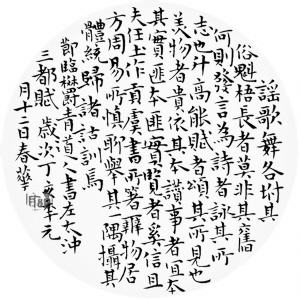 謠歌舞各坿其
俗魁梧長者莫非其舊
何則發言為詩者詠其所
志也升高能賦者頌其所見也
美物者貴依其本讚事者宜本
其實匪本匪實覽者奚信且
夫任土作貢虞書所著辯物居
方周易所慎聊舉其一隅攝其
體統歸諸詁訓焉
節臨懋爵青道人書左太沖
三都賦 歲次丁亥年元
月十二日春華